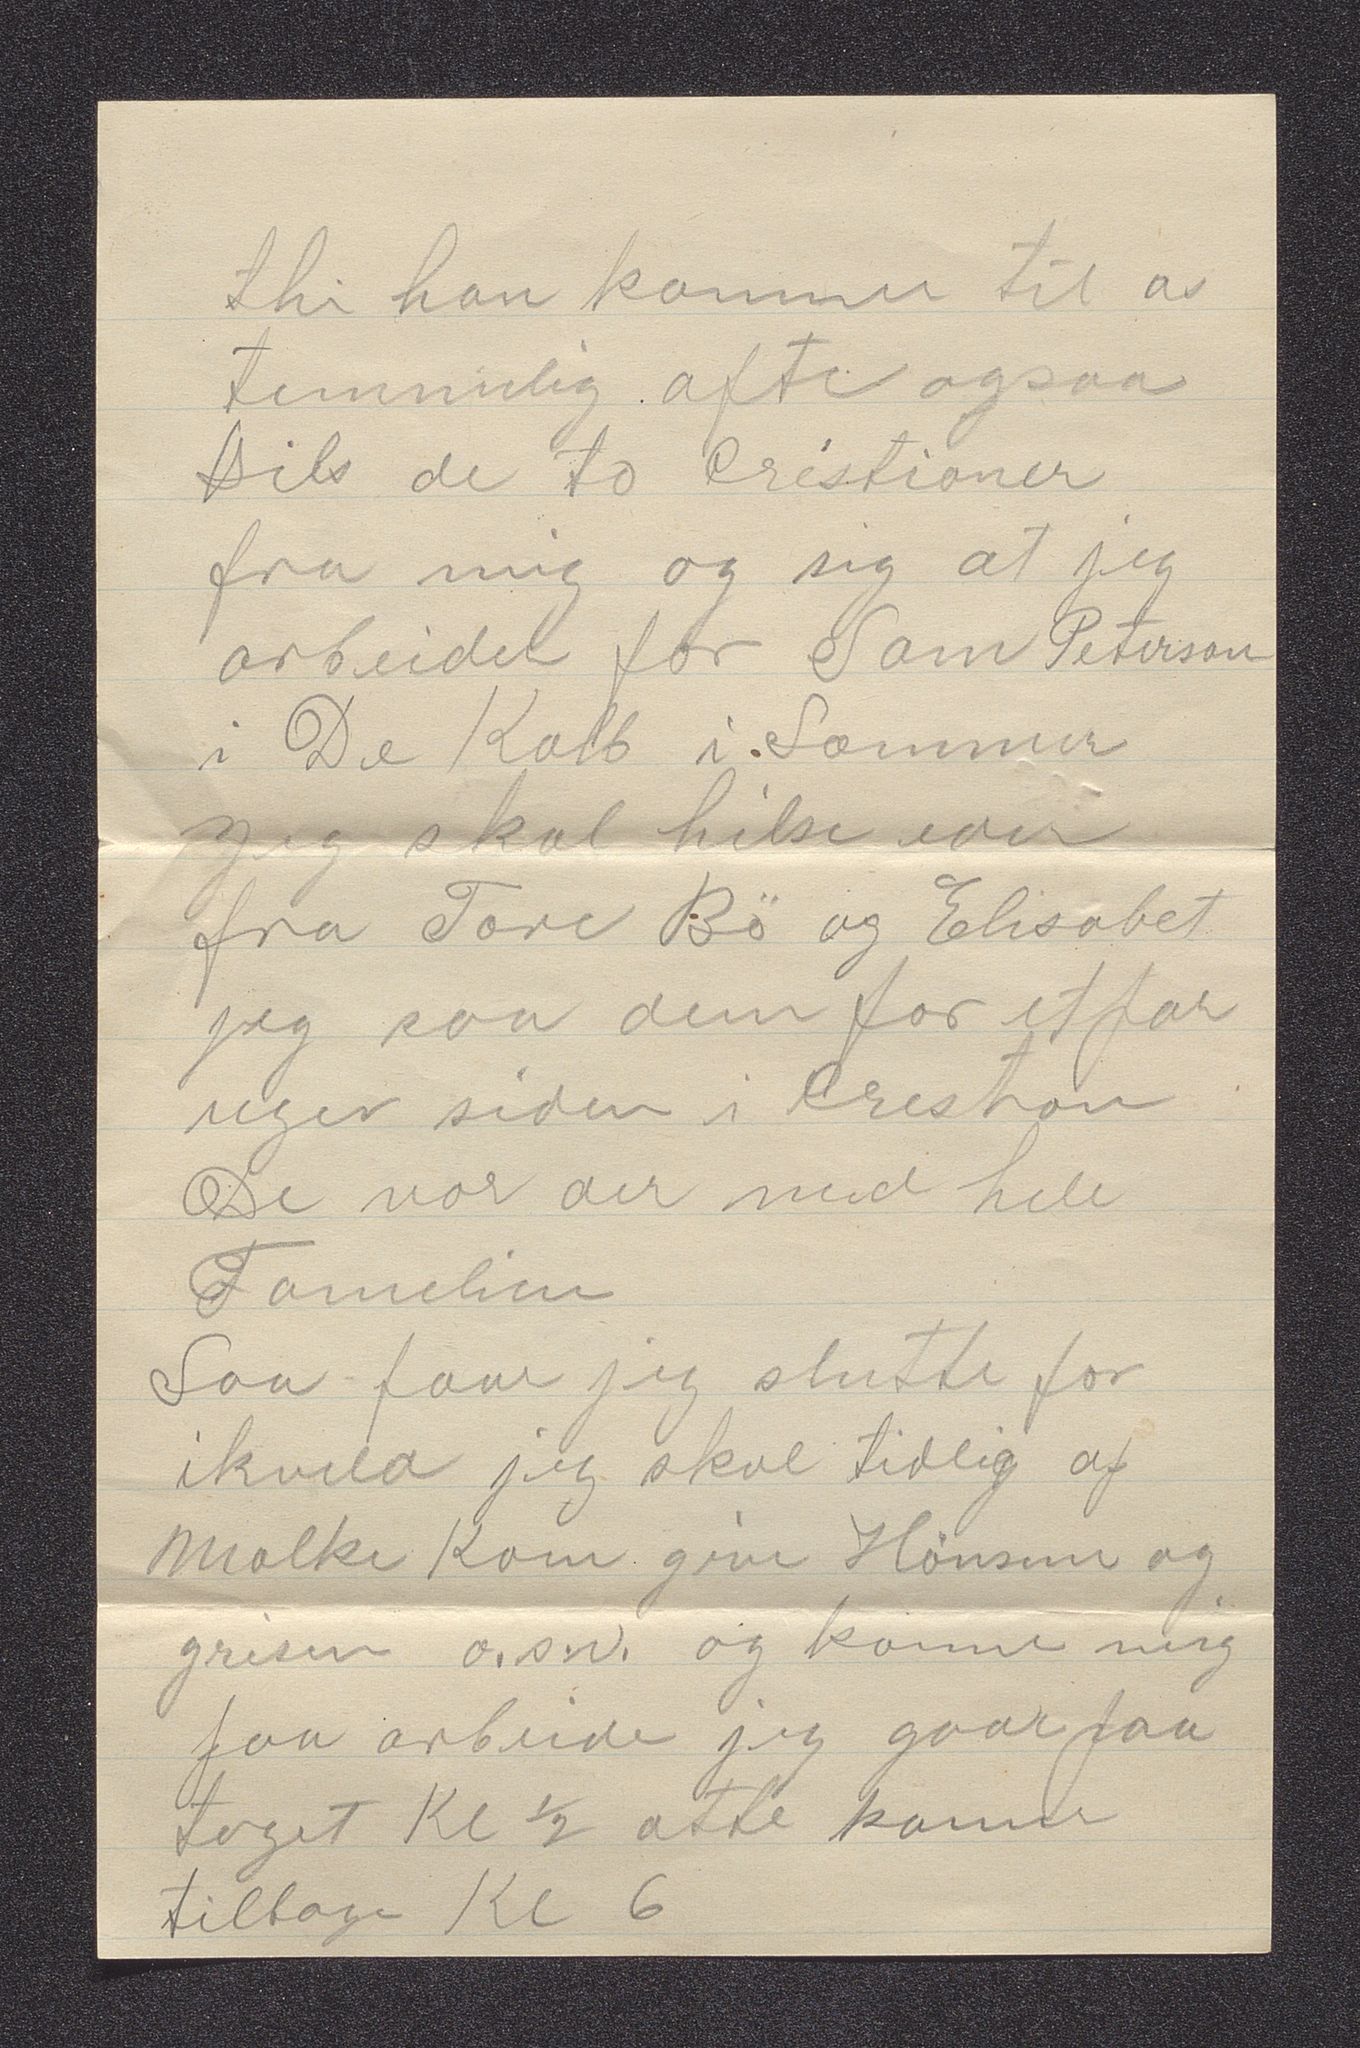 thi han kommer til os
temmelig ofte ogsaa
Hils de to Cristioner
fra mig og sig at jeg
arbeider for Sam Peterson
i De Kalb i Sommer
Jeg skal hilse eder
fra Tore Bö og Elisabet
jeg saa dem for et par
uger siden i Creston
De var der med hele
Familien
Saa faar jeg slutte for
ikveld jeg skal tidlig af
Malke Kom give Hönsene og
grisen o.s.v. og komme mig
paa arbeide jeg gaar paa
toget Kl ½ otte komme
tilbage Kl 6